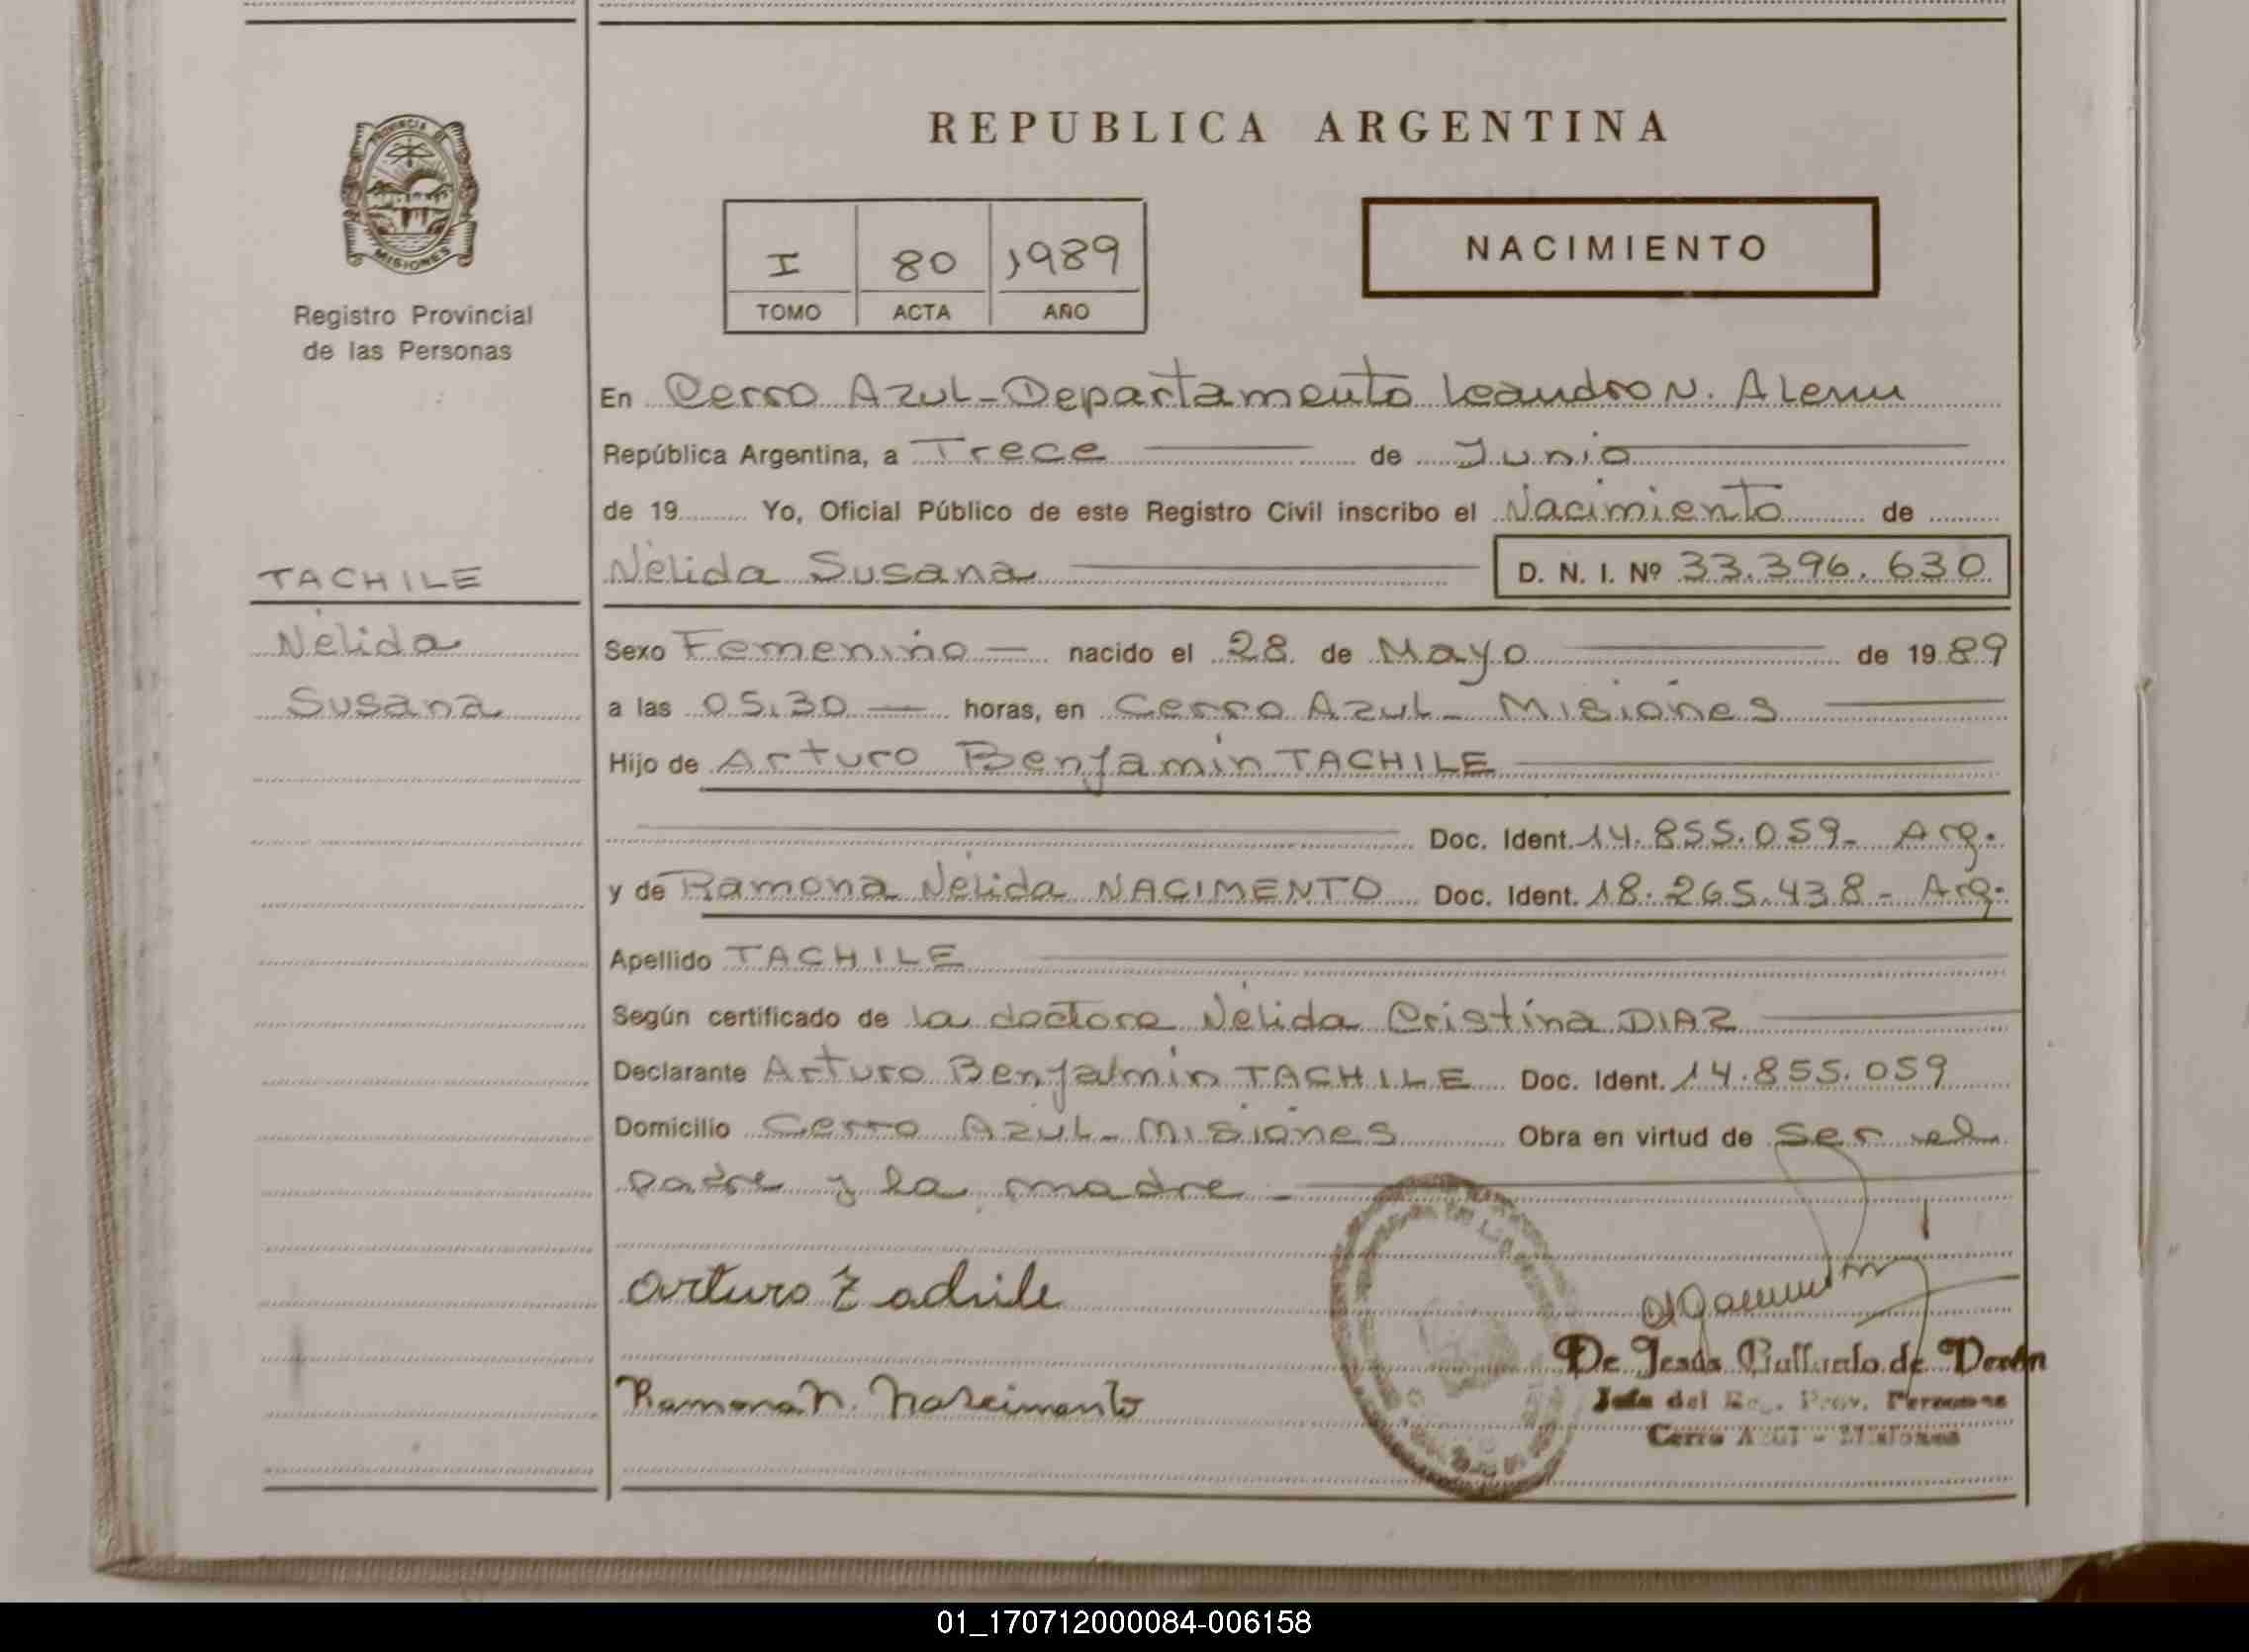 PROVINCIA DE
MISIONES
Registro Provincial
de las Personas
TACHILE
Nélida
Susana
REPUBLICA ARGENTINA
I 80 1989
TOMO ACTA AÑO
NACIMIENTO
En Cerro Azul - Departamento Leandro N. Alem
República Argentina, a Trece de Junio
de 19 Yo, Oficial Público de este Registro Civil inscribo el Nacimiento de
Nélida Susana D. N. I. Nº 33.396.630
Sexo Femenino nacido el 28 de Mayo de 1989
a las 05,30 horas, en Cerro Azul - Misiones
Hijo de Arturo Benjamín TACHILE
Doc. Ident. 14.855.059 - Arg.
y de Ramona Nélida NACIMENTO Doc. Ident. 18.265.438 - Arg.
Apellido TACHILE
Según certificado de la doctora Nélida Cristína DIAZ
Declarante Arturo Benjamín TACHILE Doc. Ident. 14.855.059
Domicilio Cerro Azul - Misiones Obra en virtud de ser el
padre y la madre -
Arturo Tachile
Ramona N. Nascimento
De Jesús de
Jefa del Reg. Prov. Personas
Cerro Azul - Misiones
01_170712000084-006158